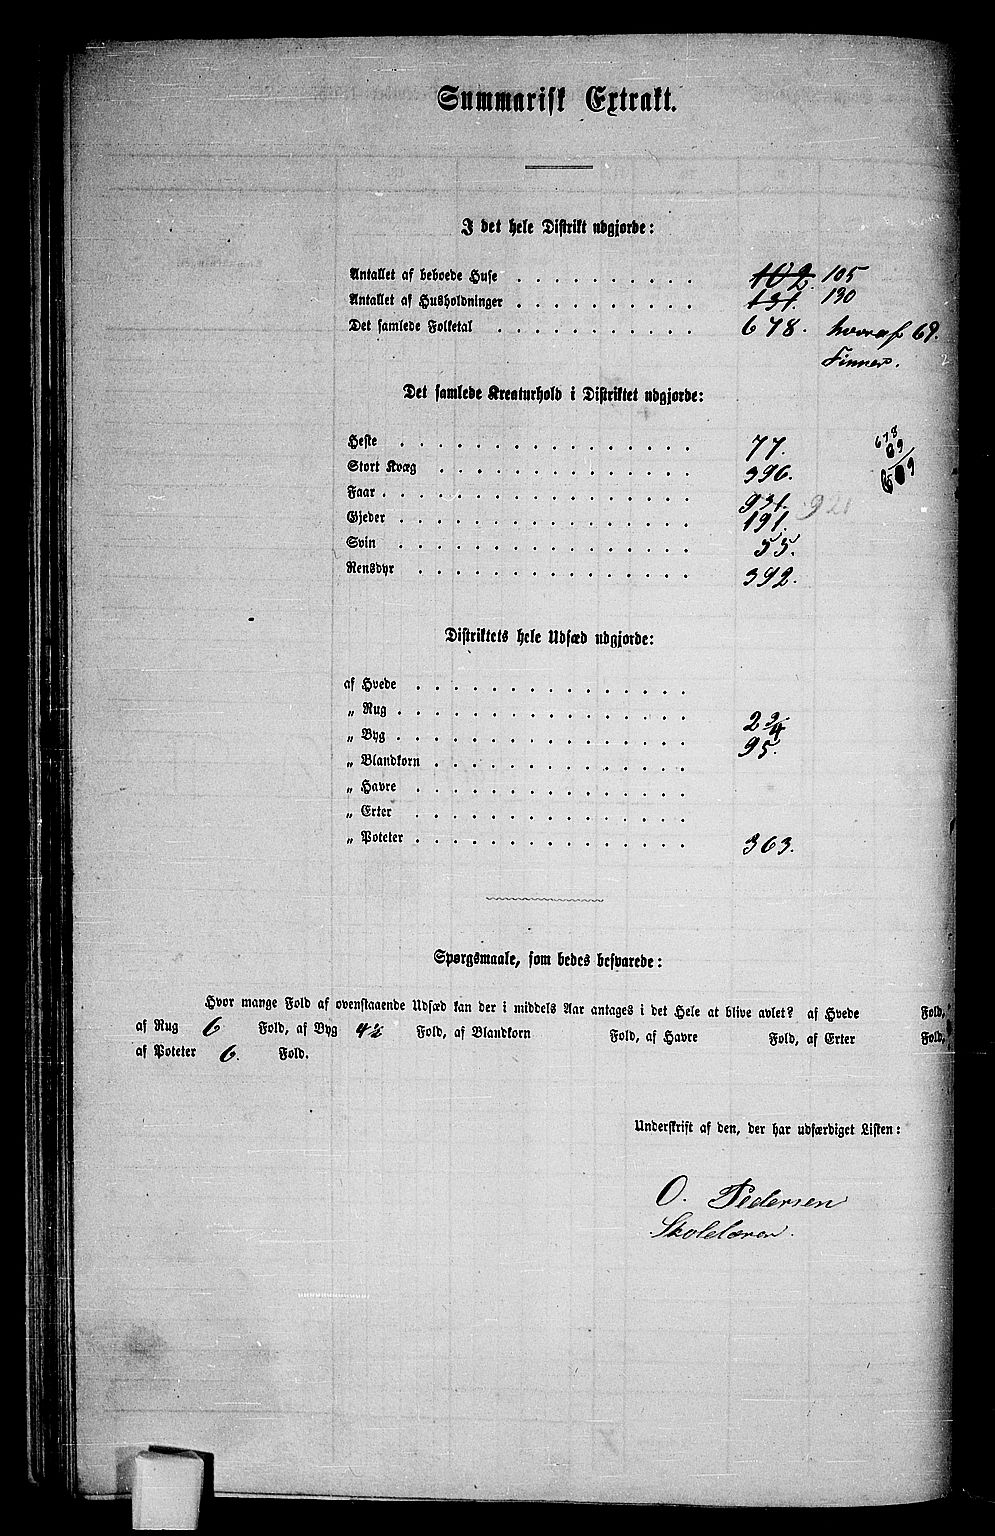 Summarisk Extrakt.
I det hele Distrikt udgjorde:
Antallet af beboede Huse . . . . . . . . . . 102. 105
Antallet af Husholdninger . . . . . . . . . . 131. 130
Det samlede Folketal . . . . . . . . . . . 678. hvoraf 69.
Finner.
Det samlede Kreaturhold i Distriktet udgjorde:
Heste . . . . . . . . . . . . . . . . 77. 678
Stort Kvæg . . . . . . . . . . . . . . 396. 69
Faar . . . . . . . . . . . . . . . . . 931. 609
Gjeder . . . . . . . . . . . . . . . . 191.
Svin . . . . . . . . . . . . . . . . 55.
Rensdyr . . . . . . . . . . . . . . . 392.
Distriktets hele Udsæd udgjorde:
af Hvede . . . . . . . . . . . . . . .
„ Rug . . . . . . . . . . . . . . . . 2 3/4
„ Byg . . . . . . . . . . . . . . . . 95.
„ Blandkorn . . . . . . . . . . . . . .
„ Havre . . . . . . . . . . . . . . .
„ Erter . . . . . . . . . . . . . . .
„ Poteter . . . . . . . . . . . . . . . 363.
Spørgsmaale, som bedes besvarede:
Hvor mange Fold af ovenstaaende Udsæd kan der i middels Aar antages i det Hele at blive avlet? af Hvede Fold,
af Rug 6 Fold, af Byg 4½ Fold, af Blandkorn Fold, af Havre Fold, af Erter Fold,
af Poteter 6. Fold.
Underskrift af den, der har udfærdiget Listen:
O. Pedersen
Skolelærer.